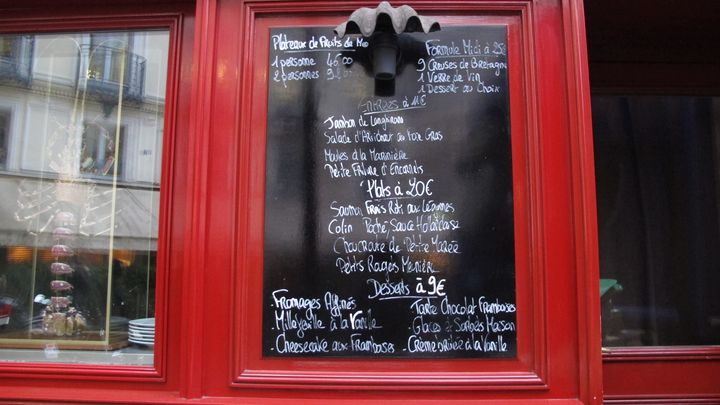 Plateaux de Fruits de Mer
1 personne 45.00
2 personnes
Formule Midi à 25€
9 Creuses de Bretagne
1 Verre de Vin
1 Dessert au Choix
Entrées à 11€
Jambon de
Salade d'Artichaut au Foie Gras
Moules à la Marinière
Petite Friture d'Encornets
Plats à 20€
Saumon Frais Rôti aux Légumes
Colin Poché, Sauce Hollandaise
Choucroute de Petite Marée
Petits Rougets Menière
Desserts à 9€
Fromages Affinés
Millefeuille à la Vanille
Cheesecake aux Framboises
- Tarte Chocolat Framboises
- Glaces & Sorbets Maison
- Crème brûlée à la Vanille